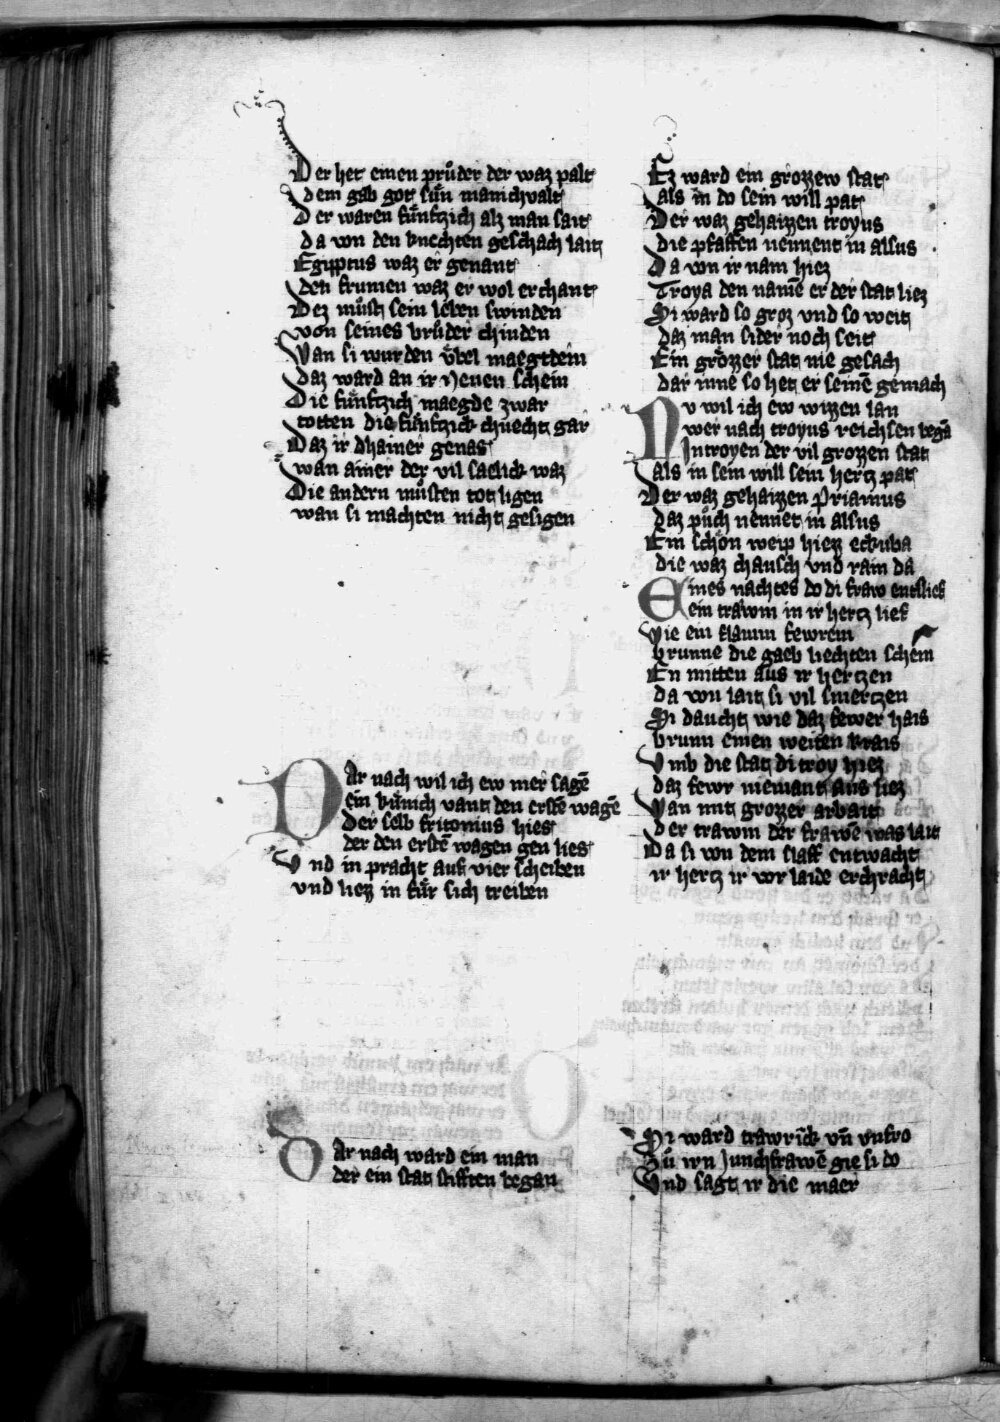 Der het einen průder der waz palt
dem gab got sůn manichvalt
Der waren fůnfzich alz man sait
da von den knechten geschach lait
Egiptus waz er genant
den frumen waz er wol erchant
Dez můst sein leben swinden
von seines brůder chinden
Wan si wurden ůbel maegtdein
daz ward an ir Neven schein
Die fůnfzich maegde zwar
totten die fůnfzick chnecht gar
Daz ir dhainer genas
wan ainer der vil saelick waz
Die andern můsten tot ligen
wan si machten nicht gesigen
Dar nach wil ich ew mer sagē
ein kůnich vant den erstē wagē
Der selb fritonius hies
der den erstē wagen gen lies
Vnd in pracht auf vier scheiben
vnd liez in fůr sich treiben
Dar nach ward ein man
der ein stat stifften began
Ez ward ein grozzew stat
als in do sein will pat
Der waz gehaizzen troyus
die pfaffen nennent in alsus
Da von ir nam hiez
Troya den namē er der stat liez
Si ward so groz vnd so weit
daz man sider noch seit
Ein grözzer stat nie gesach
dar inne so het er seinē gemach
Nv wil ich ew wizzen lan
wer nach troyus reichsen begā
In troyen der vil grozzen stat
als in sein will sein hertz pat
Der waz gehaizzen Priamus
daz půch nennet in alsus
Ein schön weip hiez eckuba
die waz chausch vnd rain da
Eines nachtes do di fraw entslief
ein trawm in ir hertz lief
Wie ein flamm fewrein
brunne die gaeb liechten schein
En mitten aus ir hertzen
da von lait si vil smertzen
Si daucht wie daz fewer hais
brunn einen weiten krais
Vmb die stat di troy hiez
daz fewr niemant aus liez
Wan mit grozzer arbait
der trawm der frawē was lait
Da si von dem slaff entwacht
ir hertz ir vor laide erchracht
Si ward trawrick vñ vnfro
Zů irn Junchfrawē gie si do
Vnd sagt ir die maer